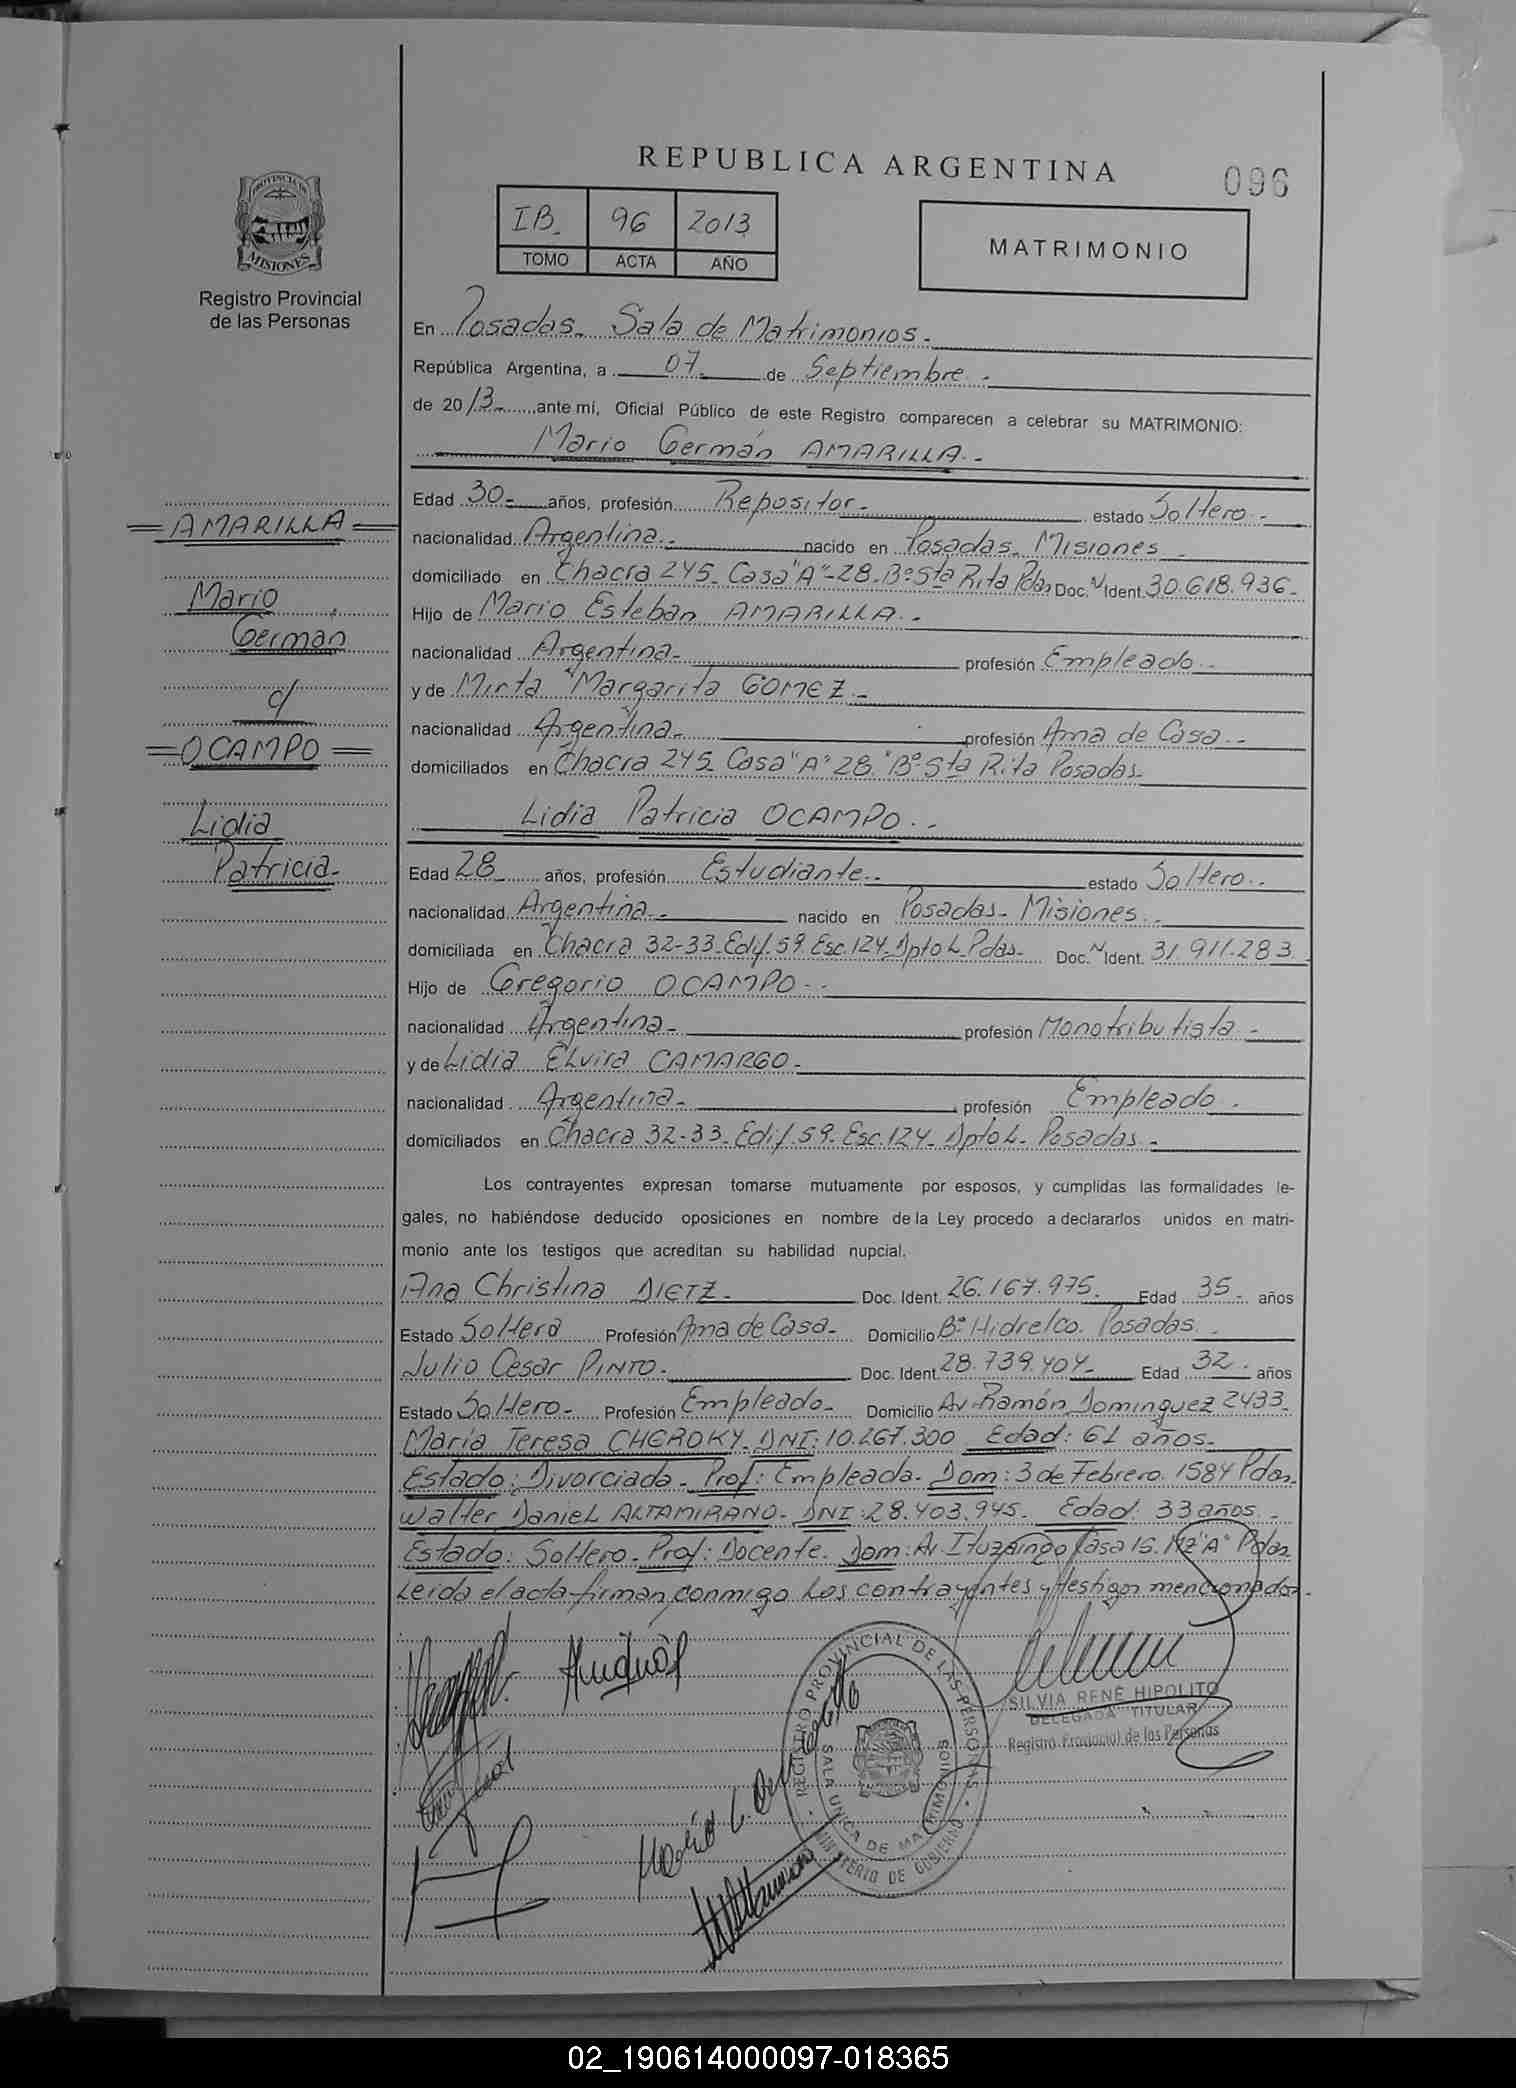 REPUBLICA ARGENTINA
096
IB. 96 2013
TOMO ACTA AÑO
MATRIMONIO
PROVINCIA DE MISIONES
Registro Provincial
de las Personas
En Posadas. Sala de Matrimonios.
República Argentina, a 07 de Septiembre.
de 2013 ante mí, Oficial Público de este Registro comparecen a celebrar su MATRIMONIO:
Mario Germán AMARILLA.
Edad 30 años, profesión Repositor estado Soltero
nacionalidad Argentina nacido en Posadas Misiones
domiciliado en Chacra 245 Casa "A"-28-Bº Sta Rita Pdas Doc. N Ident. 30.618.936
Hijo de Mario Esteban AMARILLA.
nacionalidad Argentina profesión Empleado
y de Mirta Margarita GOMEZ
nacionalidad Argentina profesión Ama de Casa
domiciliados en Chacra 245 Casa "A" 28. Bº Sta Rita Posadas
Lidia Patricia OCAMPO
Edad 28 años, profesión Estudiante estado Soltero
nacionalidad Argentina nacido en Posadas Misiones
domiciliada en Chacra 32-33 Edif. 59 Esc. 124 Dpto L Pdas Doc. N Ident. 31.911.283
Hijo de Gregorio OCAMPO
nacionalidad Argentina profesión Monotributista
y de Lidia Elvira CAMARGO
nacionalidad Argentina profesión Empleado
domiciliados en Chacra 32-33 Edif. 59 Esc. 124 Dpto L Posadas
Los contrayentes expresan tomarse mutuamente por esposos, y cumplidas las formalidades le-
gales, no habiéndose deducido oposiciones en nombre de la Ley procedo a declararlos unidos en matri-
monio ante los testigos que acreditan su habilidad nupcial.
Ana Christina DIETZ Doc. Ident. 26.167.975. Edad 35 años
Estado Soltera Profesión Ama de Casa Domicilio Bº Hidrelco. Posadas
Julio Cesar PINTO Doc. Ident. 28.739.404 Edad 32 años
Estado Soltero Profesión Empleado Domicilio Av. Ramón Dominguez 2433
Maria Teresa CHEROKY. DNI: 10.267.300 Edad: 61 años
Estado: Divorciada. Prof: Empleada. Dom: 3 de Febrero. 1584 Pdas
Walter Daniel ALTAMIRANO. DNI: 28.403.945. Edad 33 años.
Estado: Soltero. Prof: Docente. Dom: Av. Ituzaingo Casa 15. Mz "A" Pdas
Leida el acta firman conmigo los contrayentes y testigos mencionados.
=AMARILLA=
Mario
German
c/
=OCAMPO=
Lidia
Patricia
REGISTRO PROVINCIAL DE LAS PERSONAS
SALA UNICA DE MATRIMONIOS
MINISTERIO DE GOBIERNO
SILVIA RENÉ HIPOLITO
DELEGADA TITULAR
Registro Provincial de las Personas
02_190614000097-018365